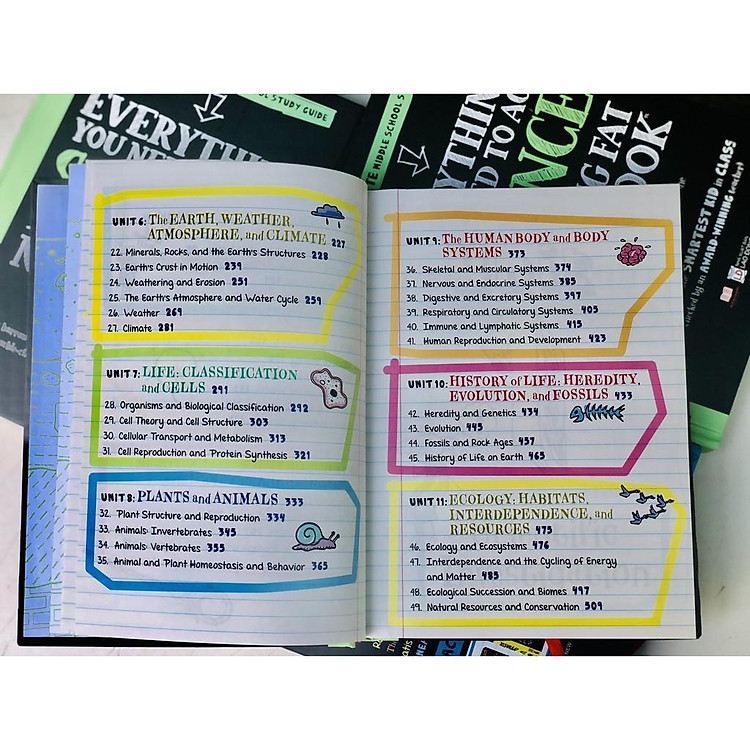 OL STUDY GUIDE
EVERYTHI
YOU NE
TE MIDDLE SCHOOL S
YTHIN
D TO AC
NCE
NG FAT
OOK
SMARTEST KID in CLASS
hecked by an AWARD-WINNING teacher)
UNIT 6: The EARTH, WEATHER,
ATMOSPHERE, and CLIMATE 227
22. Minerals, Rocks, and the Earth's Structures 228
23. Earth's Crust in Motion 239
24. Weathering and Erosion 251
25. The Earth's Atmosphere and Water Cycle 259
26. Weather 269
27. Climate 281
UNIT 7: LIFE: CLASSIFICATION
and CELLS 291
28. Organisms and Biological Classification 292
29. Cell Theory and Cell Structure 303
30. Cellular Transport and Metabolism 313
31. Cell Reproduction and Protein Synthesis 321
UNIT 8: PLANTS and ANIMALS 333
32. Plant Structure and Reproduction 334
33. Animals: Invertebrates 345
34. Animals: Vertebrates 355
35. Animal and Plant Homeostasis and Behavior 365
UNIT 9: The HUMAN BODY and BODY
SYSTEMS 373
36. Skeletal and Muscular Systems 374
37. Nervous and Endocrine Systems 385
38. Digestive and Excretory Systems 397
39. Respiratory and Circulatory Systems 405
40. Immune and Lymphatic Systems 415
41. Human Reproduction and Development 423
UNIT 10: HISTORY of LIFE: HEREDITY,
EVOLUTION, and FOSSILS 433
42. Heredity and Genetics 434
43. Evolution 445
44. Fossils and Rock Ages 457
45. History of Life on Earth 465
UNIT 11: ECOLOGY: HABITATS,
INTERDEPENDENCE, and
RESOURCES 475
46. Ecology and Ecosystems 476
47. Interdependence and the Cycling of Energy
and Matter 485
48. Ecological Succession and Biomes 497
49. Natural Resources and Conservation 509